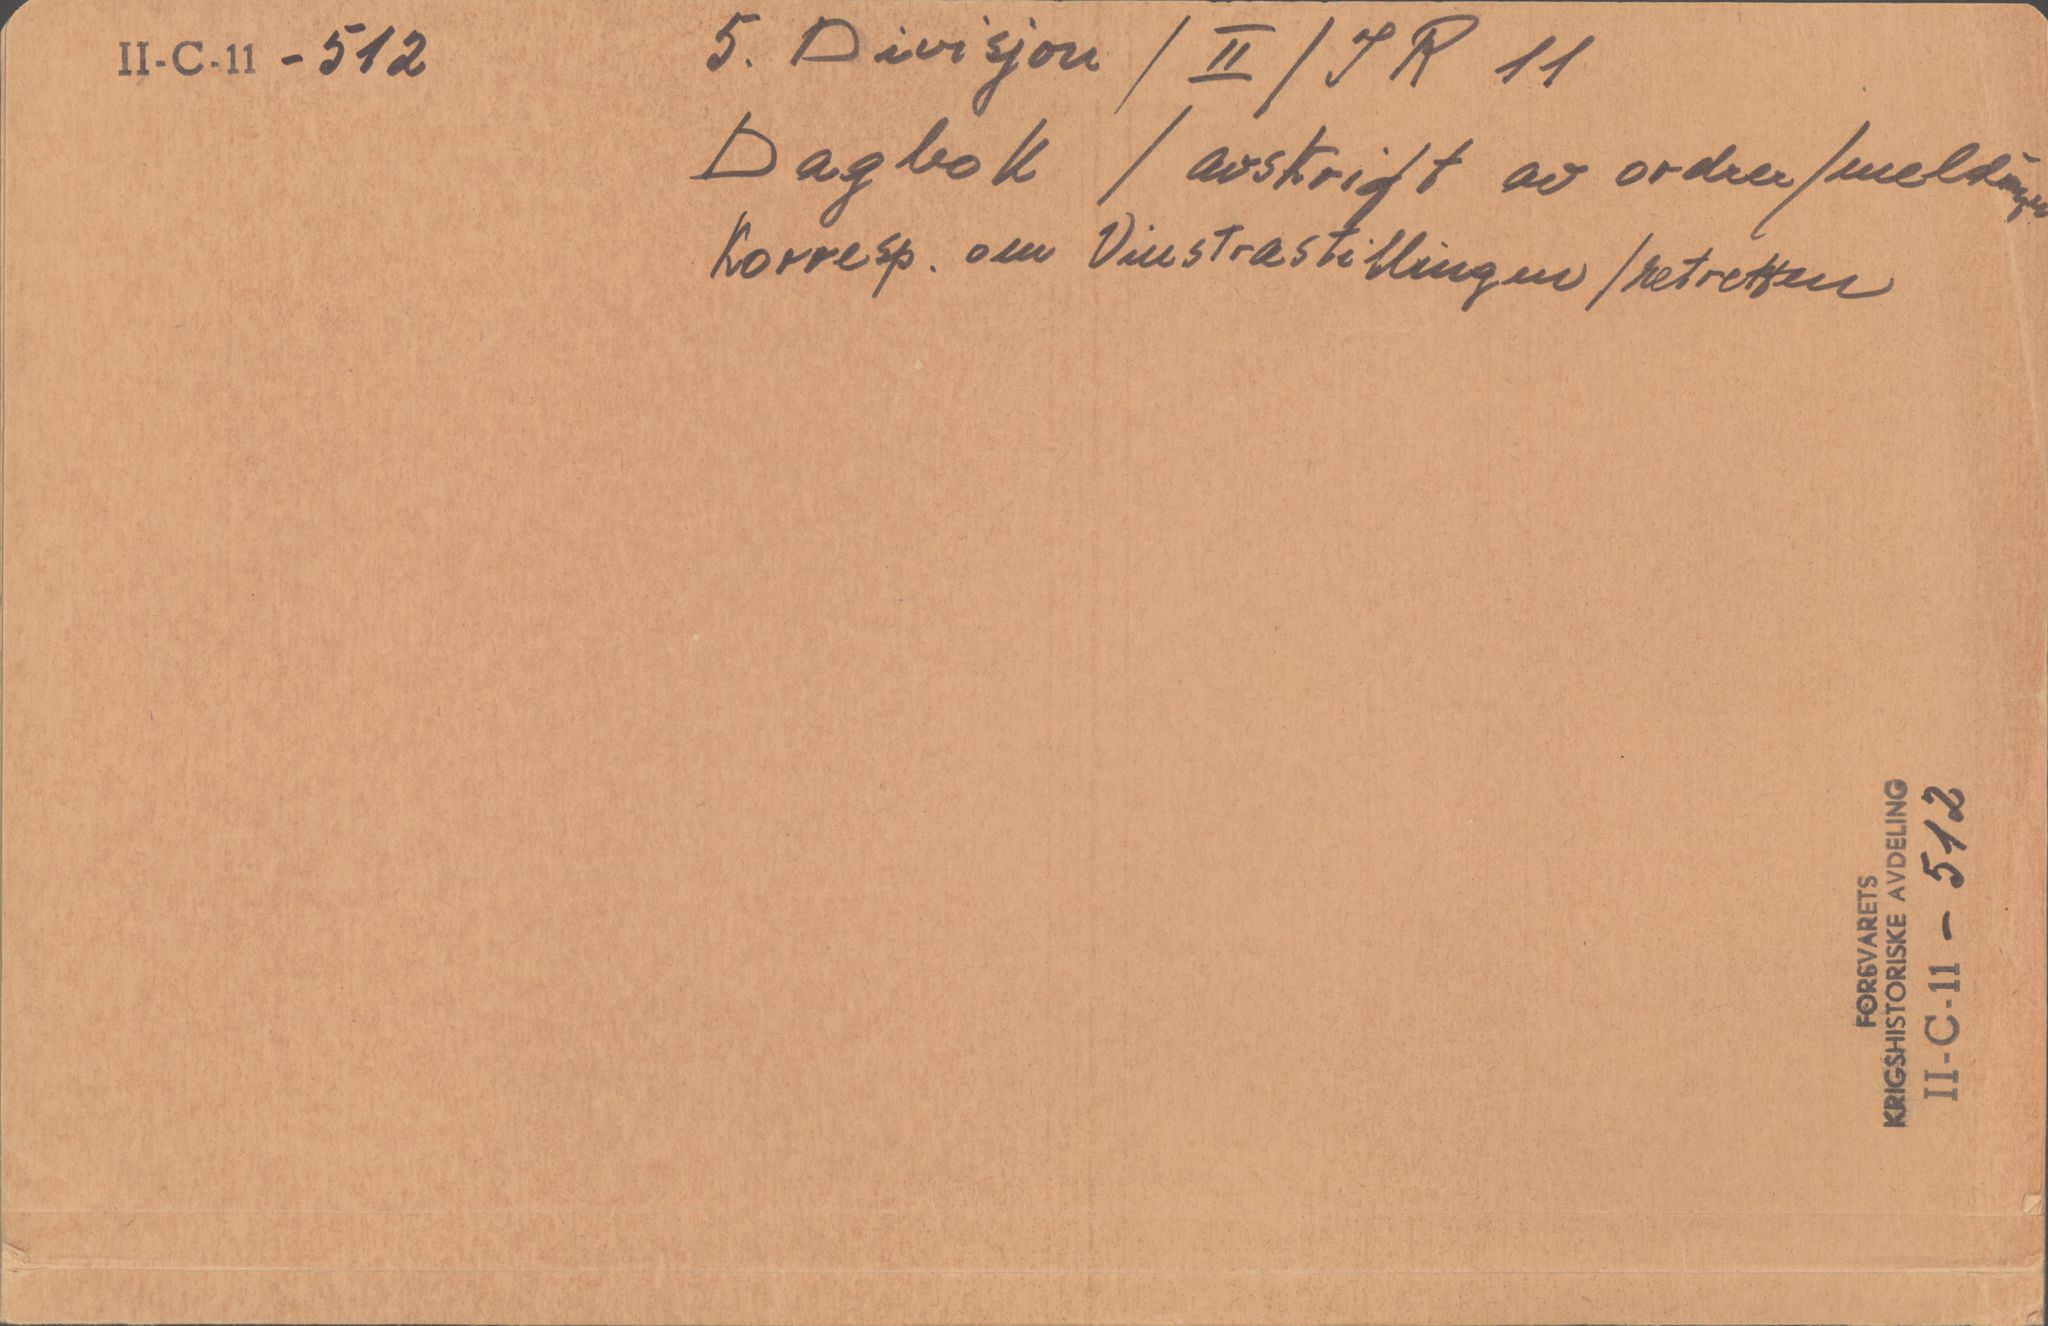 II-C-11 - 512
5. Divisjon / II / IR 11
Dagbok / avskrift av ordrer/meldinger
Korresp. om Vinstrastillingen /retretten
FORSVARETS
KRIGSHISTORISKE AVDELING
II-C-11 - 512